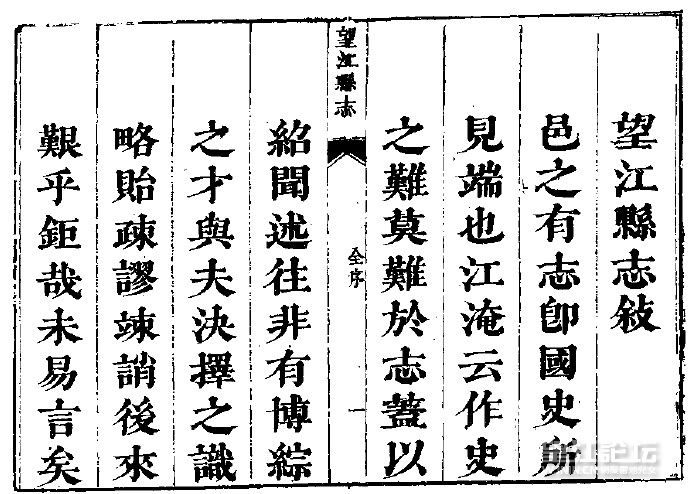 望江縣志敍
邑之有志卽國史所
見端也江淹云作史
之難莫難於志蓋以
望江縣志
全序
一
紹聞述往非有博綜
之才與夫決擇之識
略貽疎謬竦誚後來
艱乎鉅哉未易言矣